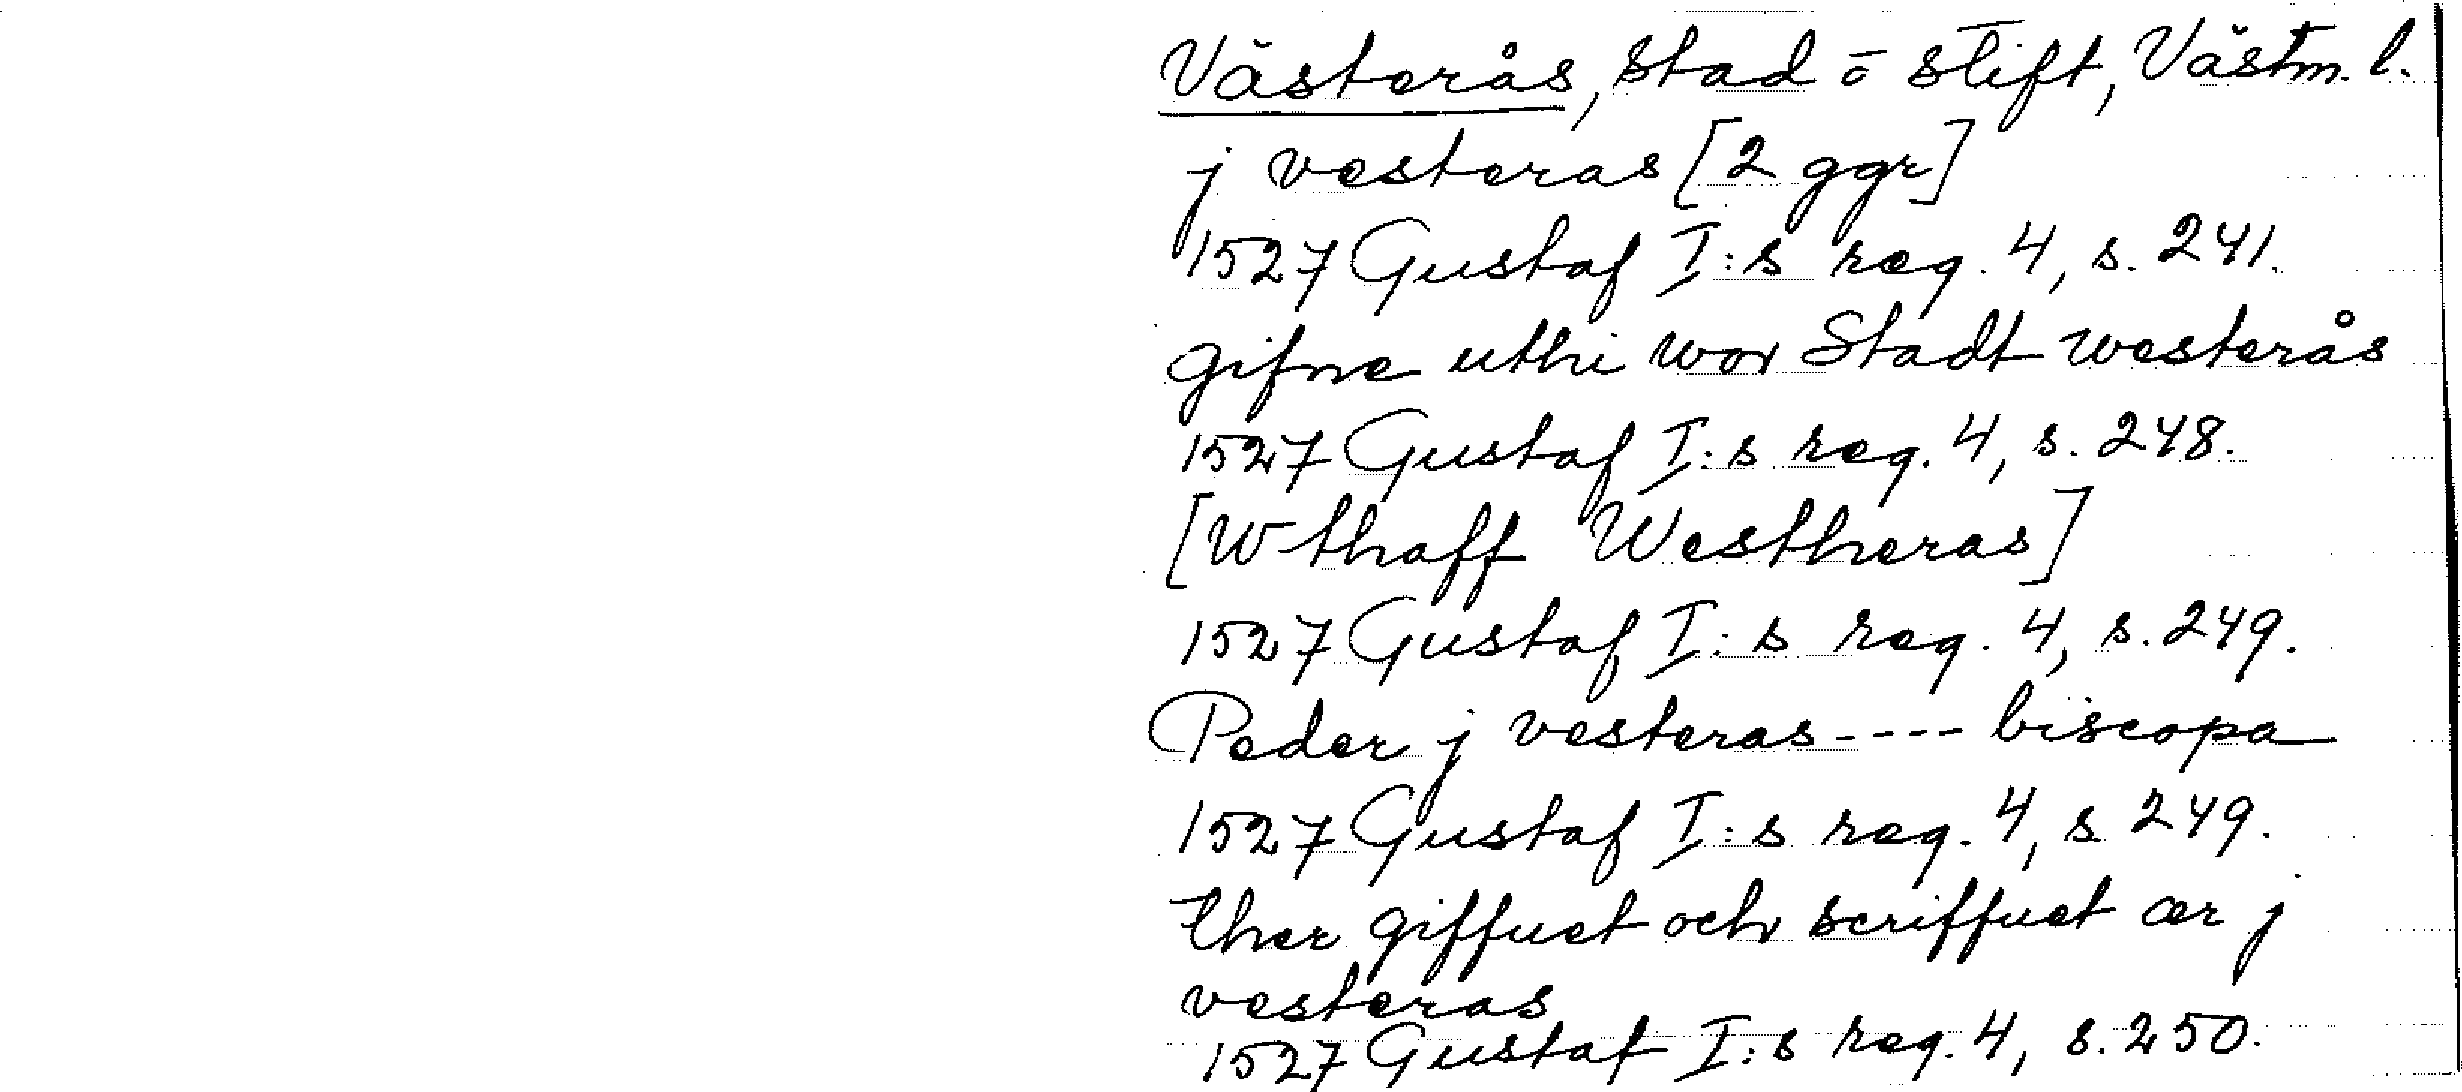 Västerås, stad o stift, Västm. l.
j vesteras [2 ggr]
1527 Gustaf I:s reg. 4, s. 241.
gifne uthi wor Stadt westerås
1527 Gustaf I:s reg. 4, s. 248.
[Wthaff Westheras]
1527 Gustaf I:s reg. 4, s. 249.
Peder j vesteras---- biscopa
1527 Gustaf I:s reg. 4, s 249.
ther giffuet och scriffuet ær j
vesteras
1527 Gustaf I:s reg. 4, s. 250.